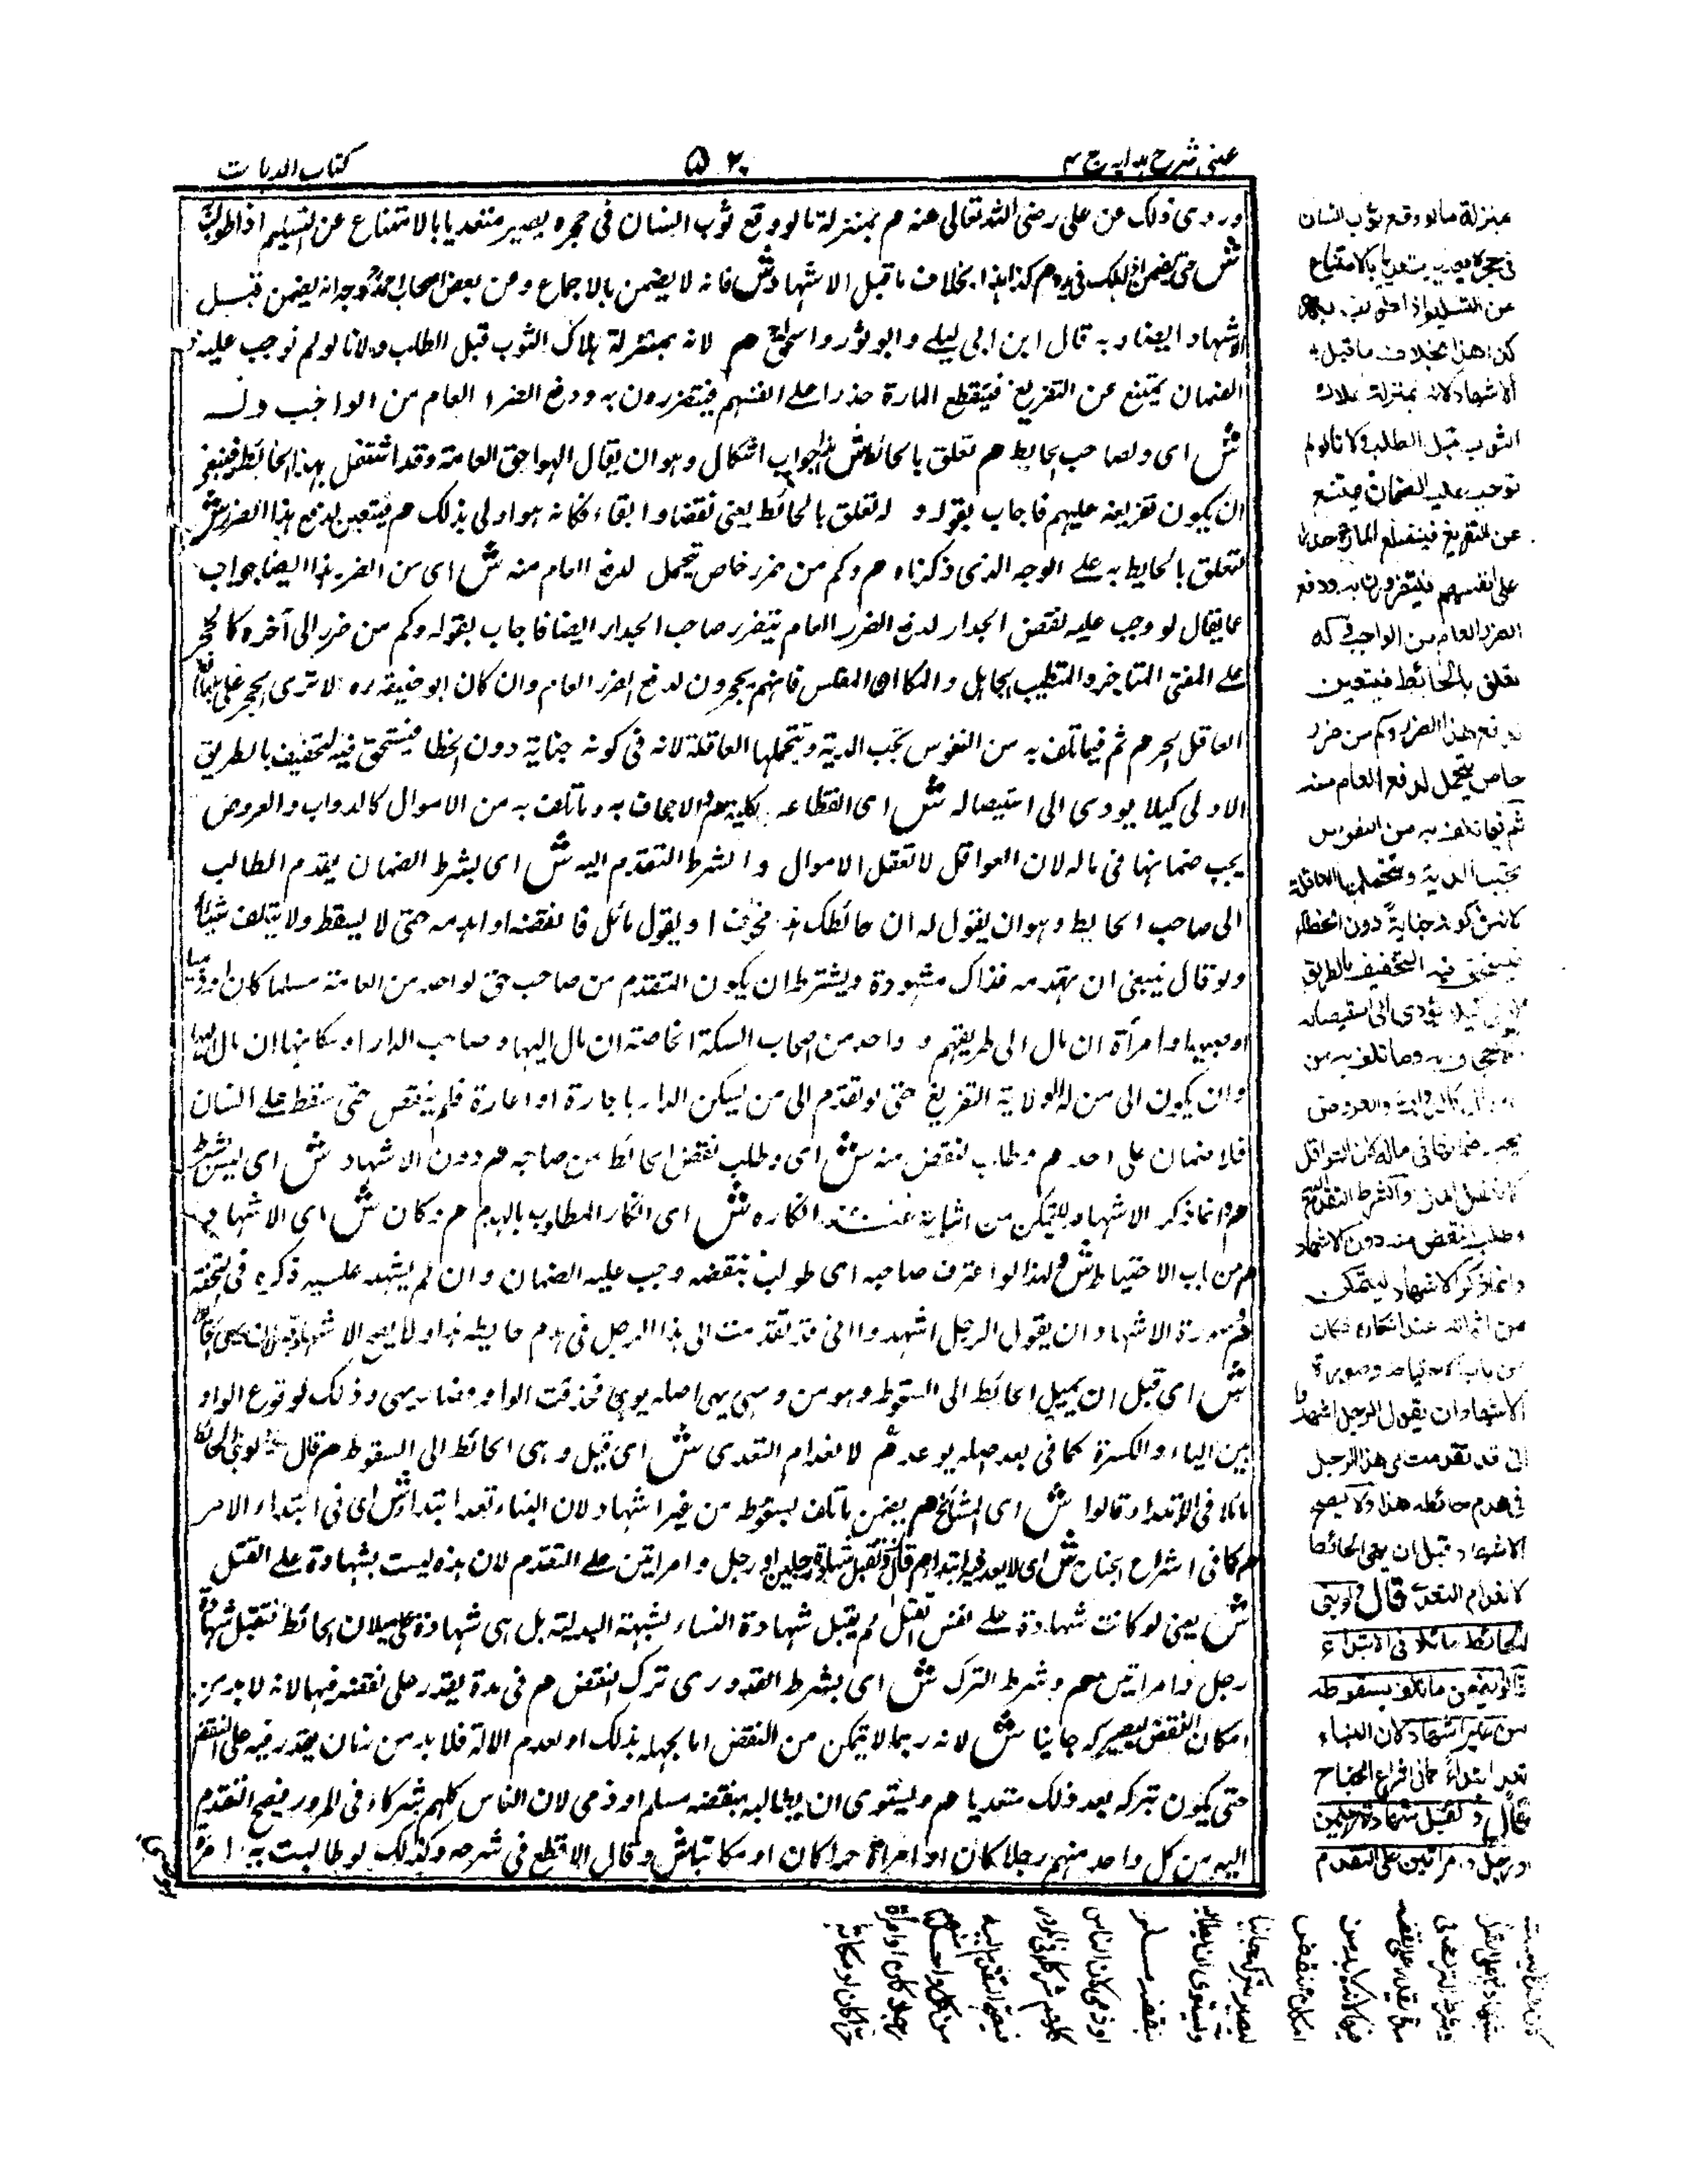 عینی شرح ہدایہ ج ۴
۵۲۰
کتاب الدیات
وروى ذلك عن على رضى الله تعالى عنه م بمنزلة ما لو وقع ثوب انسان فى حجره يصير متعديا بالامتناع عن التسليم اذا طولب
ش حتى يضمن اذا هلك فى يده م كذا هذا بخلاف ما قبل الاشهاد ش فانه لا يضمن بالاجماع وعن بعض اصحاب احمد وجه انه يضمن قبل
الاشهاد ايضا وبه قال ابن ابى ليلى وابو ثور واسحق م لانه بمنزلة هلاك الثوب قبل الطلب ولانا لو لم نوجب عليه
الضمان يمتنع عن التفريغ فينقطع المارة حذرا على انفسهم فيتضررون به ودفع الضرر العام من الواجب وله
ش اى ولصاحب الحايط م تعلق بالحائط ش هذا جواب اشكال وهو ان يقال الهواء حق العامة وقد اشتغل بهذا الحائط فينبغى
ان يكون تفريغه عليهم فاجاب بقوله و له تعلق بالحائط يعنى نقضا وابقاء فكانه هو اولى بذلك م فيتعين لدفع هذا الضرر ش
لتعلق الحايط به على الوجه الذى ذكرناه م وكم من ضرر خاص يتحمل لدفع العام منه ش اى من الضرر هذا ايضا جواب
عما يقال لو وجب عليه نقض الجدار لدفع الضرر العام يتضرر صاحب الجدار ايضا فاجاب بقوله وكم من ضرر الى آخره كالحجر
على المفتى الماجن والمتطبب الجاهل والمكارى المفلس فانهم يحجرون لدفع الضرر العام وان كان ابو حنيفة ره لا يرى الحجر على
العاقل الحر م ثم فيما تلف به من النفوس تجب الدية وتتحملها العاقلة لانه فى كونه جناية دون الخطا فيستحق فيه التخفيف بالطريق
الاولى كيلا يودى الى استيصاله ش اى انقطاعه بكلية م والاجحاف به وما تلف به من الاموال كالدواب والعروض
يجب ضمانها فى ماله لان العواقل لا تعقل الاموال والشرط التقدم اليه ش اى يشرط الضمان يقدم الطالب
الى صاحب الحايط وهو ان يقول له ان حائطك هذا مخوف او يقول مائل فانقضه او اهدمه حتى لا يسقط ولا يتلف شيئا
ولو قال ينبغى ان تهدمه فذاك مشورة ويشترط ان يكون التقدم من صاحب حق لواحد من العامة مسلما كان او ذميا
او صبيا او امرأة ان مال الى طريقهم و واحد من اصحاب السكة الخاصة ان مال اليها وصاحب الدار او سكانها ان مال اليها
وان يكون الى من له ولاية التفريغ حتى لو تقدم الى من يسكن الدار باجارة او اعارة فلم ينقض حتى سقط على انسان
فلا ضمان على احد م وطلب النقض منه ش اى وطلب نقض الحائط من صاحبه م دون الاشهاد ش اى ليس بشرط
م وانما ذكر الاشهاد ليتمكن من اثباته عند انكاره ش اى انكار المطلوب بالهدم م فكان ش اى الاشهاد
م من باب الاحتياط ش ولهذا لو اعترف صاحبه اى طولب بنقضه وجب عليه الضمان وان لم يشهد عليه ذكره فى التحفة
م وصورة الاشهاد ان يقول الرجل اشهدوا انى قد تقدمت الى هذا الرجل فى هدم حايطه هذا ولا يصح الاشهاد قبل ان يهى الحائط
ش اى قبل ان يميل الحائط الى السقوط وهو من وهى يهى اصله يوهى فحذفت الواو فصار يهى وذلك لوقوع الواو
بين الياء والكسرة كما فى يعد اصله يوعد م لانعدام التعدى ش اى قبل وهى الحائط الى السقوط م قال ولو بنى الحائط
مائلا فى الابتداء قالوا ش اى المشائخ م يضمن ما تلف بسقوطه من غير اشهاد لان البناء تعد ابتداء ش اى فى ابتداء الامر
م كما فى اشراع الجناح م قال وتقبل شهادة رجلين او رجل وامراتين على التقدم لان هذه ليست بشهادة على القتل
ش يعنى لو كانت شهادة على نفس القتل لم يقبل شهادة النساء لشبهة البدلية بل هى شهادة على ميلان الحائط فتقبل شهادة
رجل وامراتين م وشرط الترك ش اى يشرط القدورى ترك النقض م فى مدة يقدر على نقضه فيها لانه لا بد من
امكان النقض ليصير بتركه جانيا ش لانه ربما لا يتمكن من النقض اما بجهله بذلك او لعدم الالة فلا بد من زمان يقدر فيه على النقض
حتى يكون بتركه بعد ذلك متعديا م ويستوى ان يطالبه بنقضه مسلم او ذمى لان الناس كلهم شركاء فى المرور فيصح التقدم
اليه من كل واحد منهم رجلا كان او امراة حرا كان او مكاتبا ش وقال الاقطع فى شرحه وكذلك لو طالبت به امراة
بمنزلة ما لو وقع ثوب انسان
فى حجره يصير متعديا بالامتناع
عن التسليم اذا طولب به
كذا هذا بخلاف ما قبل
الاشهاد لانه بمنزلة هلاك
الثوب قبل الطلب ولانا لو لم
نوجب عليه الضمان يمتنع
عن التفريغ فينقطع المارة حذرا
على انفسهم فيتضررون به ودفع
الضرر العام من الواجب وله
تعلق بالحائط فيتعين
لدفع هذا الضرر وكم من ضرر
خاص يتحمل لدفع العام منه
ثم فيما تلف به من النفوس
تجب الدية وتتحملها العاقلة
لانه فى كونه جناية دون الخطاء
فيستحق فيه التخفيف بالطريق
يؤدى الى استيصاله
وما تلف به من
والعروض
يجب ضمانها فى ماله لان العواقل
لا تعقل المال والشرط التقدم
وطلب النقض منه دون الاشهاد
وانما ذكر الاشهاد ليتمكن
من اثباته عند انكاره فكان
من باب الاحتياط وصورة
الاشهاد ان يقول الرجل اشهدوا
انى قد تقدمت الى هذا الرجل
فى هدم حائطه هذا ولا يصح
الاشهاد قبل ان يهى الحائط
لانعدام التعدى قال ولو بنى
الحائط مائلا فى الابتداء
قالوا يضمن ما تلف بسقوطه
من غير اشهاد لان البناء
تعد ابتداء كما فى اشراع الجناح
قال وتقبل شهادة رجلين
او رجل وامراتين على التقدم
شهادة على القتل
وشرط الترك فى
مدة يقدر على نقضه
فيها لانه لا بد من
امكان النقض
ليصير بتركه جانيا
ويستوى ان يطالبه
بنقضه مسلم
او ذمى لان الناس
كلهم شركاء فى المرور
فيصح التقدم اليه
من كل واحد منهم
رجلا كان او امرأة
حرا كان او مكاتبا